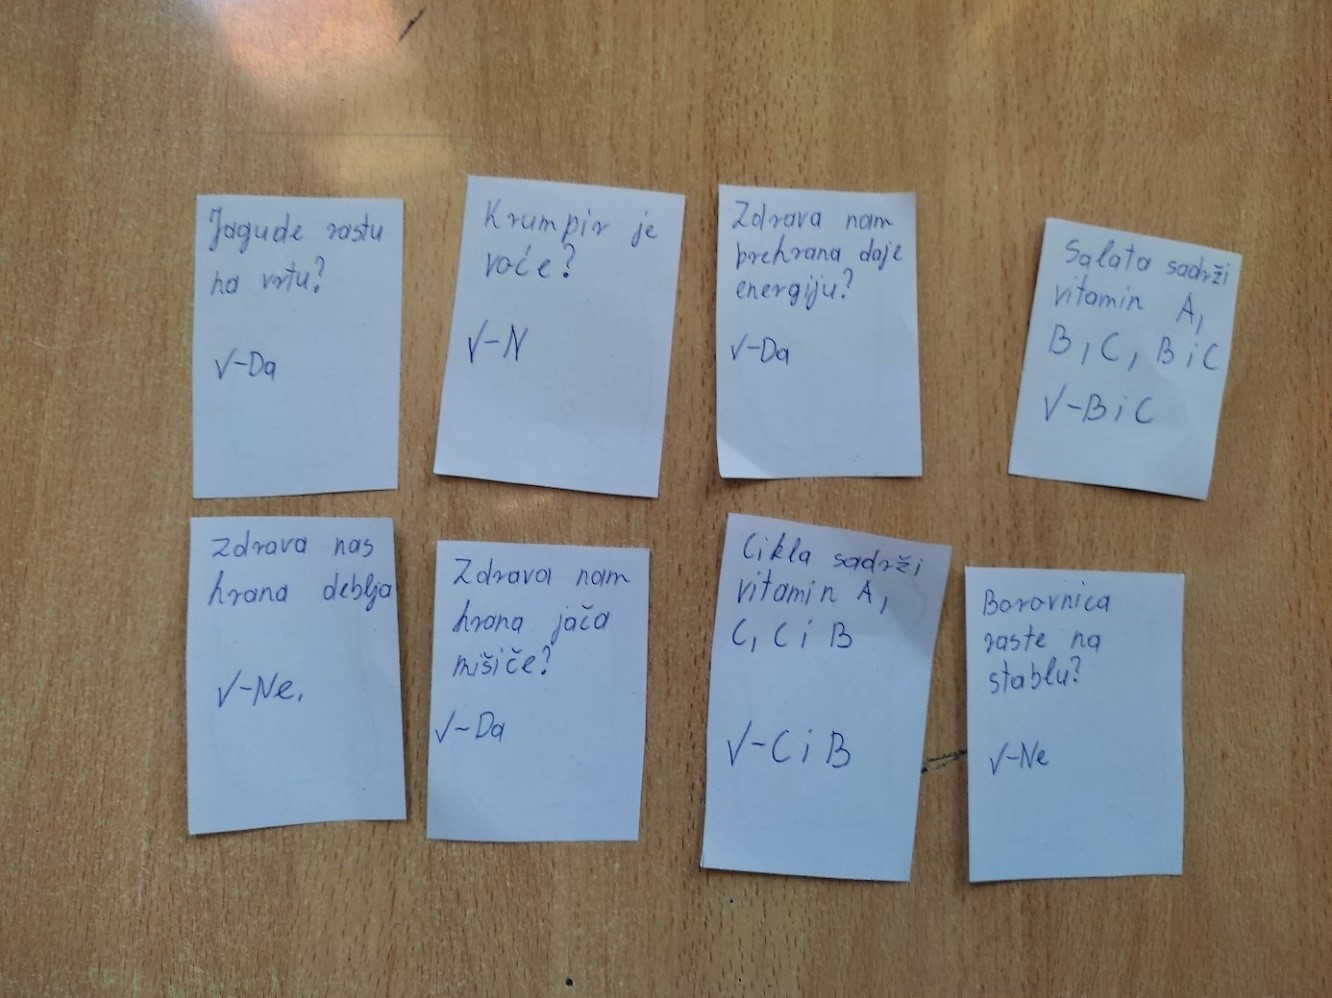 Jagude rastu
na vrtu?
√-Da
Krumpir je
voće?
√-N
Zdrava nam
prehrana daje
energiju?
√-Da
Salata sadrži
vitamin A,
B, C, B i C
√-B i C
Zdrava nas
hrana deblja
√-Ne.
Zdrava nam
hrana jača
mišiče?
√-Da
Cikla sadrži
vitamin A,
C, C i B
√-C i B
Borovnica
raste na
stablu?
√-Ne